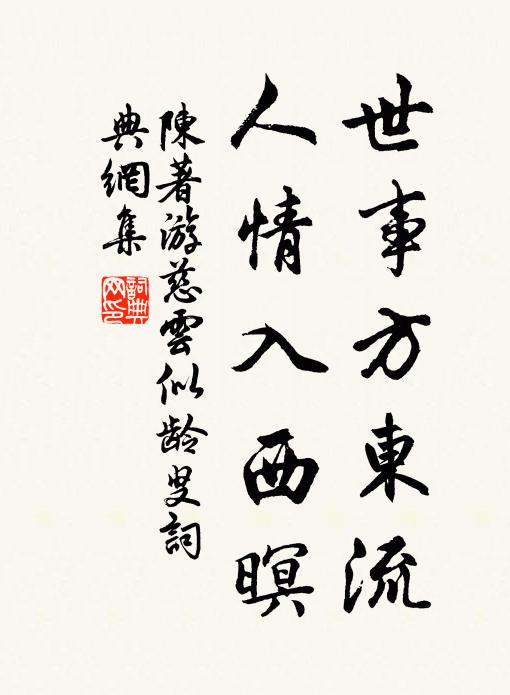 世事方東流
人情入西暝
陳著游慈雲似齡叟詞
典網集
詞典網印